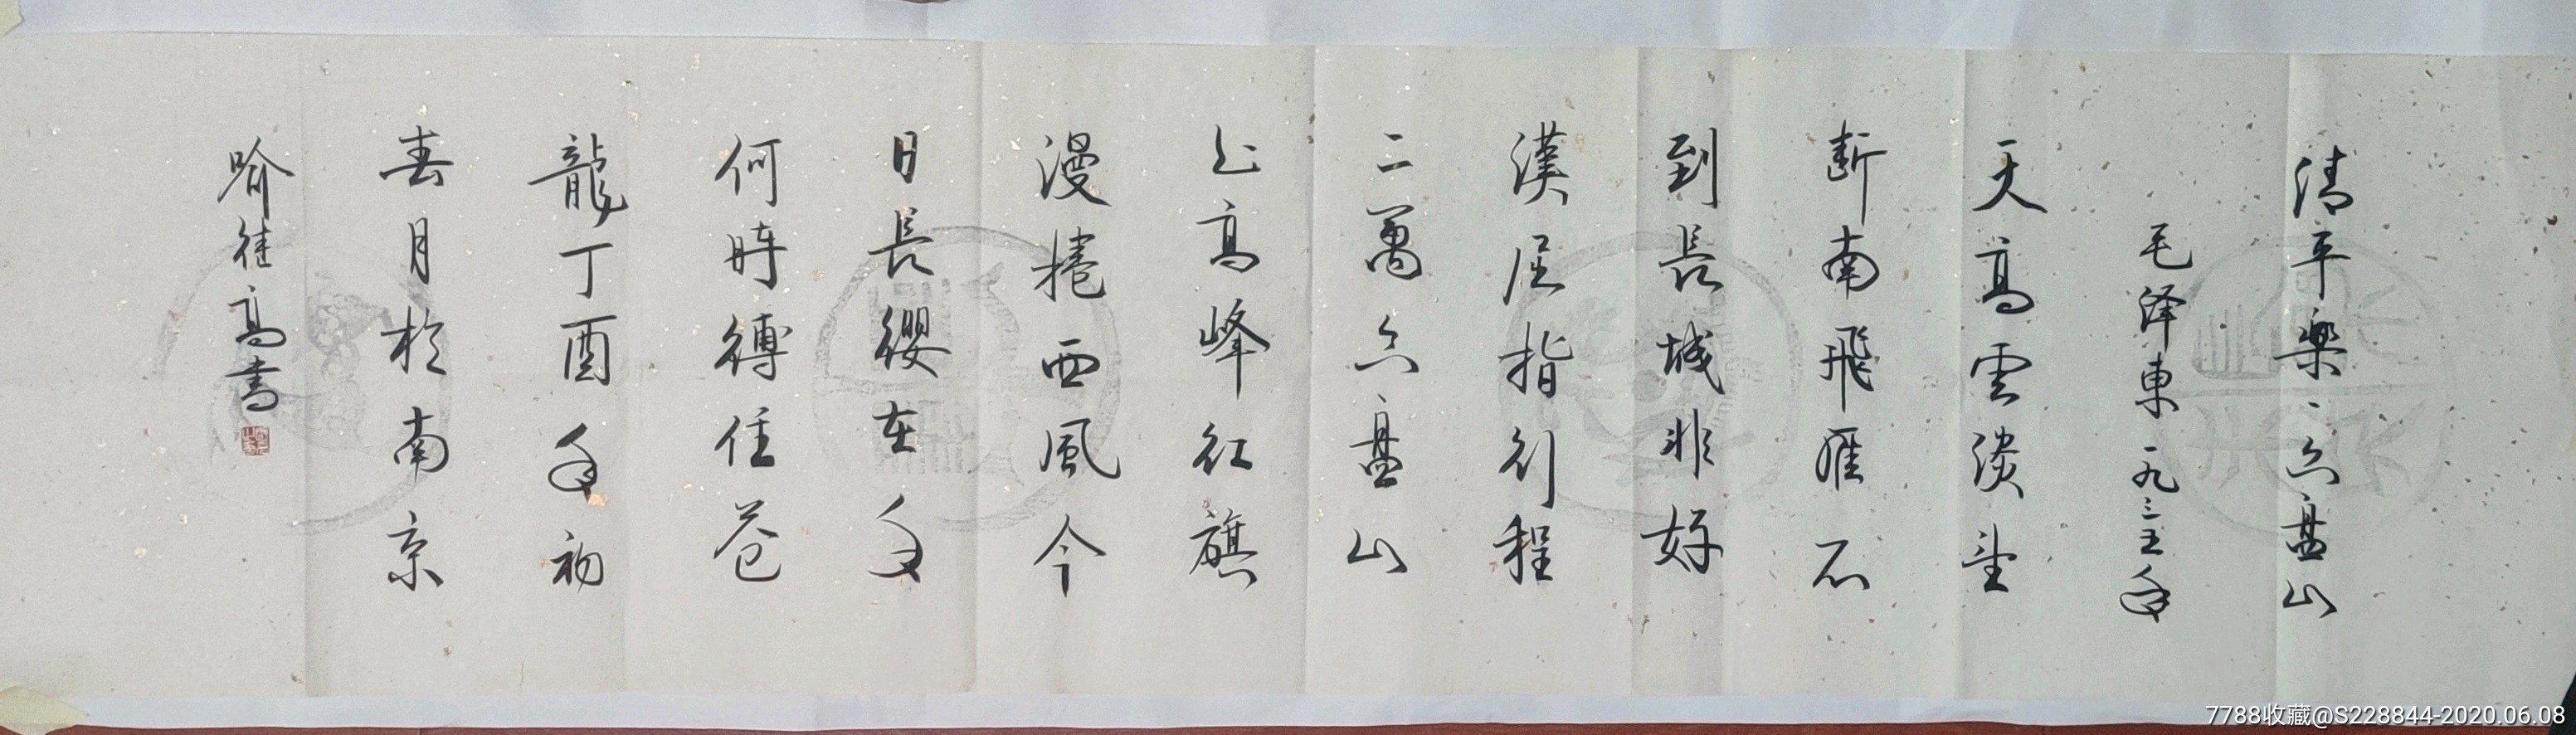 清平樂、六盤山
毛泽東一九三五年
天高雲淡望
斷南飛雁不
到長城非好
漢屈指行程
二萬六盤山
上高峰紅旗
漫捲西風今
日長纓在手
何時縛住蒼
龍丁酉年初
春月於南京
喻继高書
7788收藏@S228844-2020.06.08